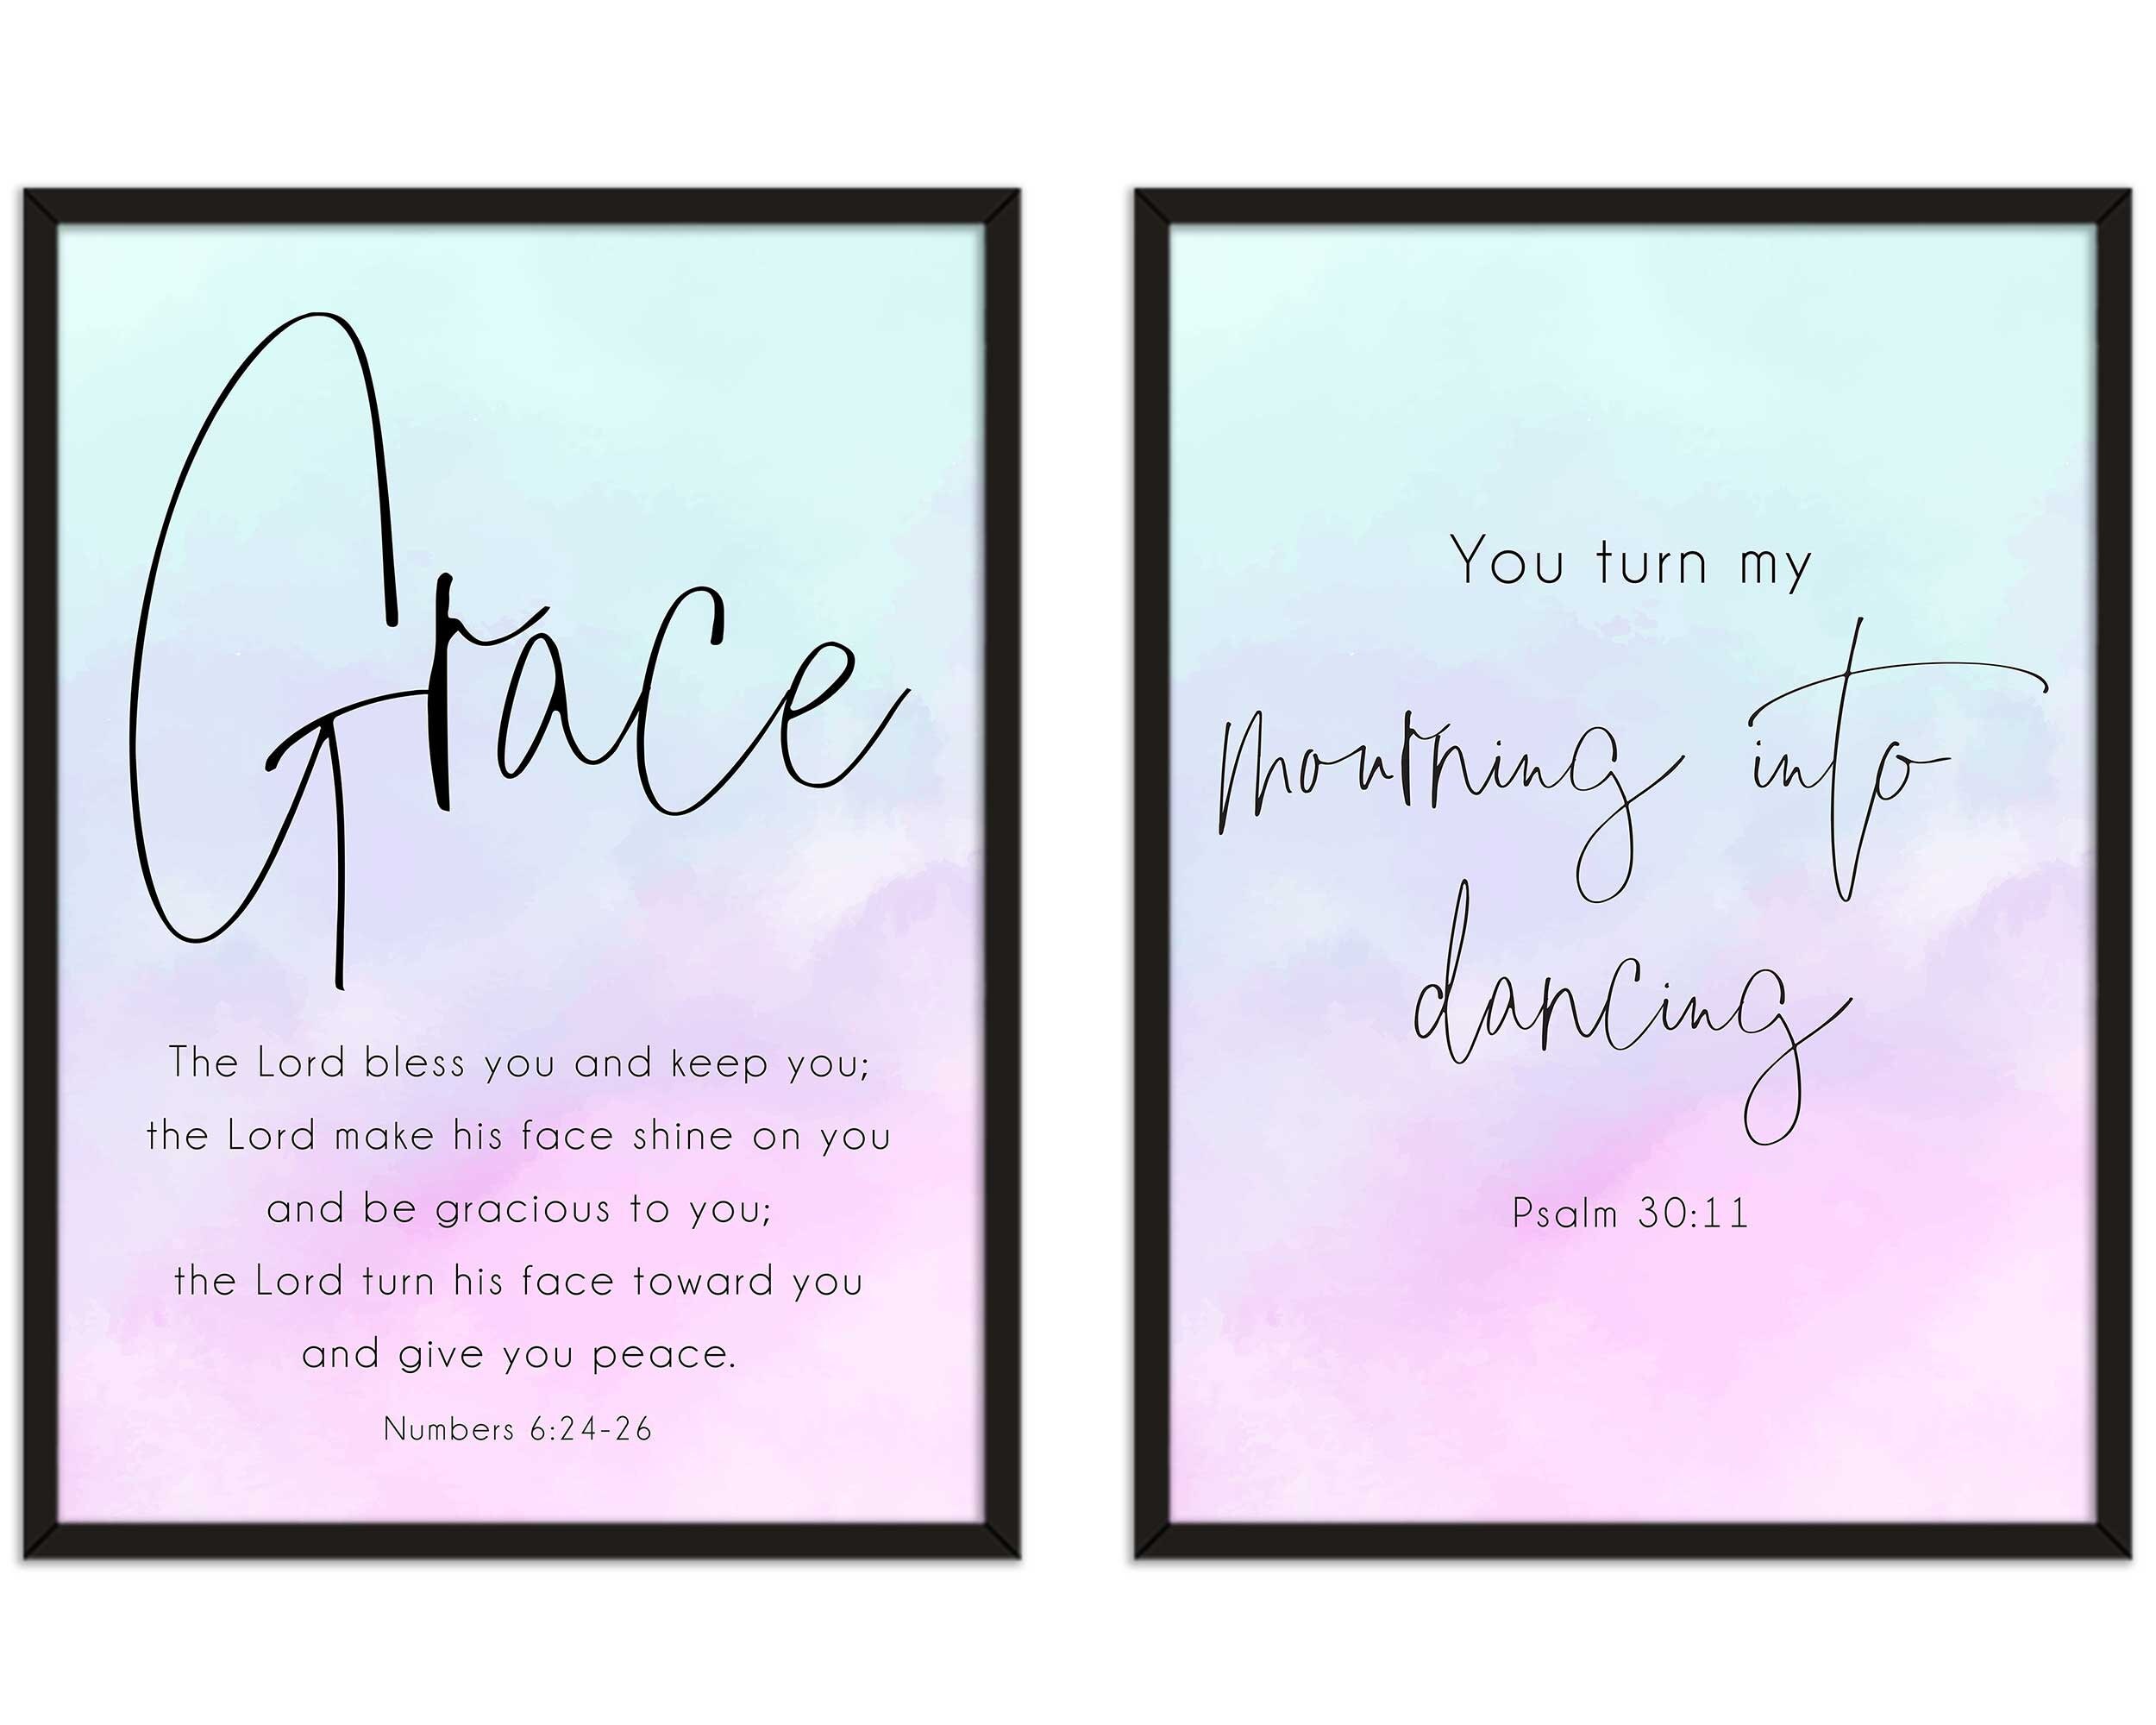 Grace
The Lord bless you and keep you;
the Lord make his face shine on you
and be gracious to you;
the Lord turn his face toward you
and give you peace.
Numbers 6:24-26
You turn my
mourning into
dancing
Psalm 30:11